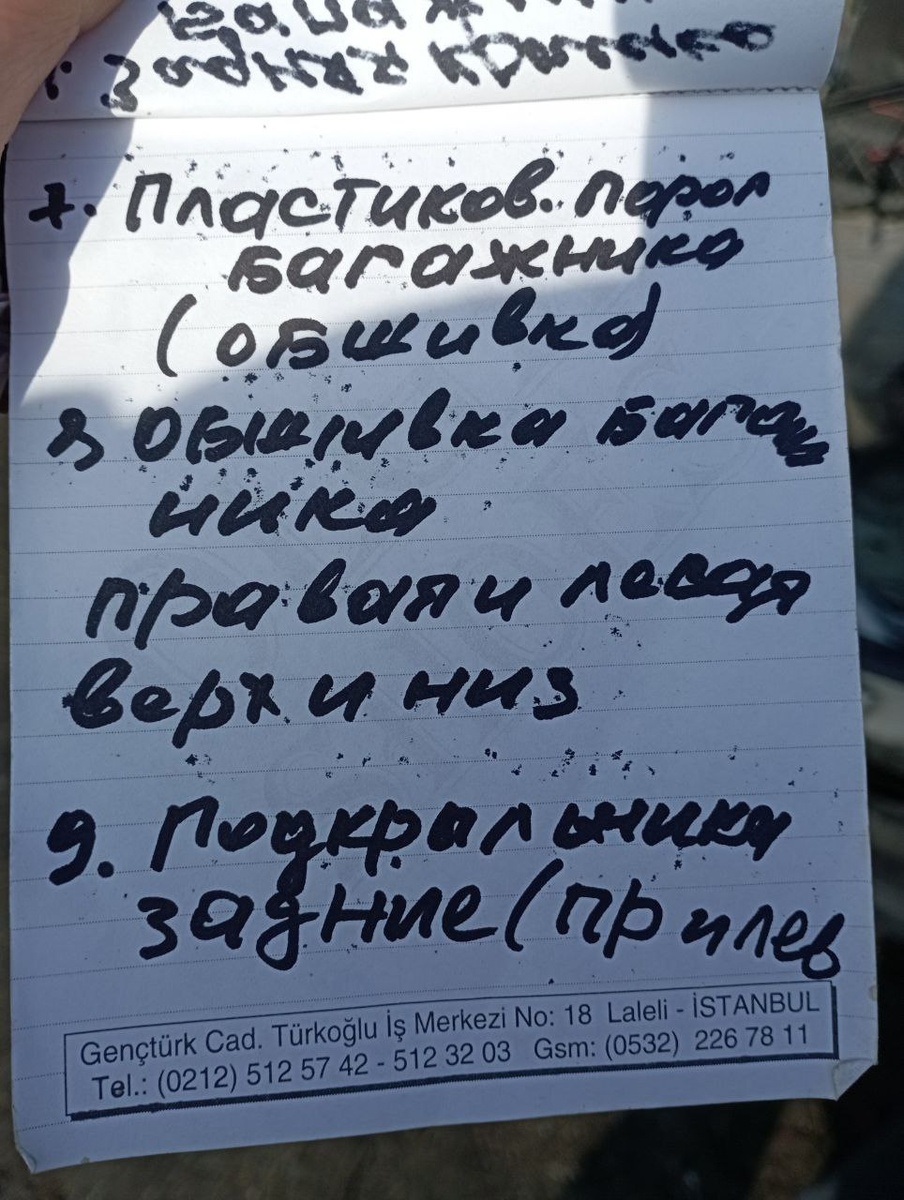 задняя
7. Пластиков. порол
багажника
(обшивка)
8, Обшивка багаж
ника
правая и левая
верх и низ
9. Подкрыльника
задние (при лев
Gençtürk Cad. Türkoğlu İş Merkezi No: 18 Laleli - İSTANBUL
Tel.: (0212) 512 57 42 - 512 32 03 Gsm: (0532) 226 78 11